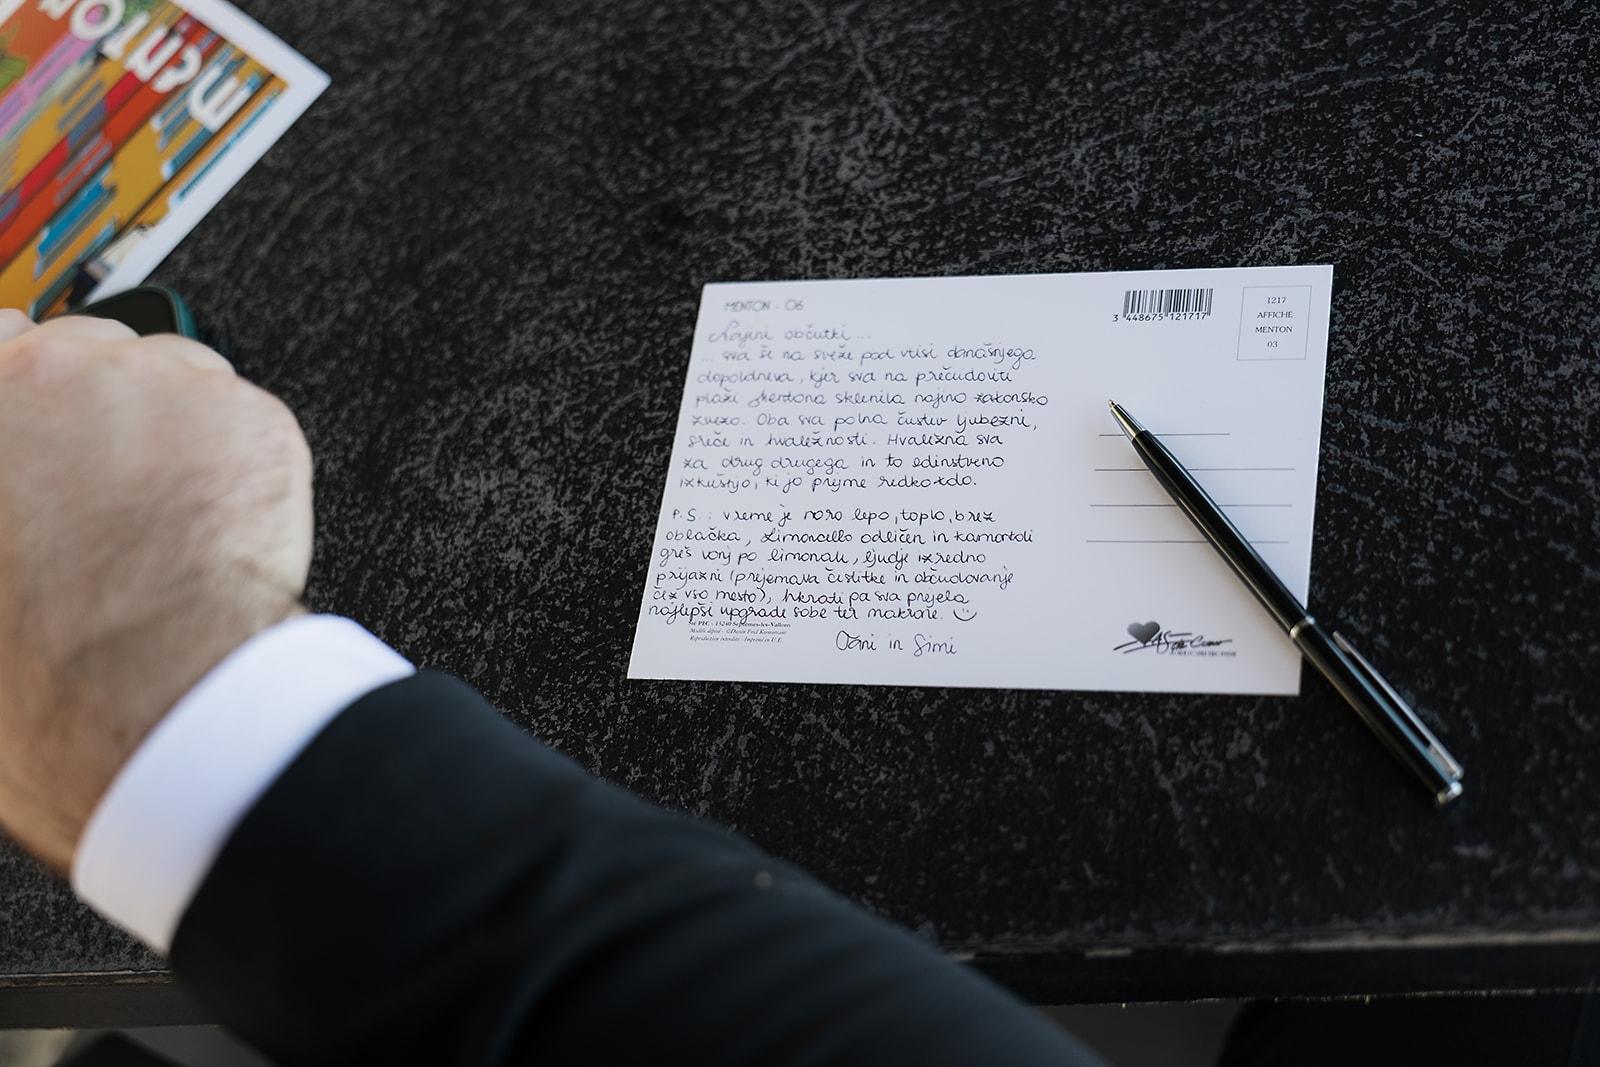 MENTON
MENTON - 06
Najini občutki...
... sva še na sveže pod vtisi današnjega
dopoldneva, kjer sva na prečudoviti
plaži Mentona sklenila najino zakonsko
zvezo. Oba sva polna čustev ljubezni,
sreče in hvaležnosti. Hvaležna sva
za drug drugega in to edinstveno
izkušnjo, ki jo prijme redkokdo.
P.S.: vreme je noro lepo, toplo, brez
oblačka, Limoncello odličen in kamorkoli
greš vonj po limonah, ljudje izredno
prijazni (prejemava čestitke in občudovanje
čez vso mesto), hkrati pa sva prejela
najlepši upgrade sobe ter makrone.
in Simi
3 448675 121717
1217
AFFICHE
MENTON
03
13240 Septèmes-les-Vallons
Modèle déposé -
Reproduction interdite - Imprimé en U.E.